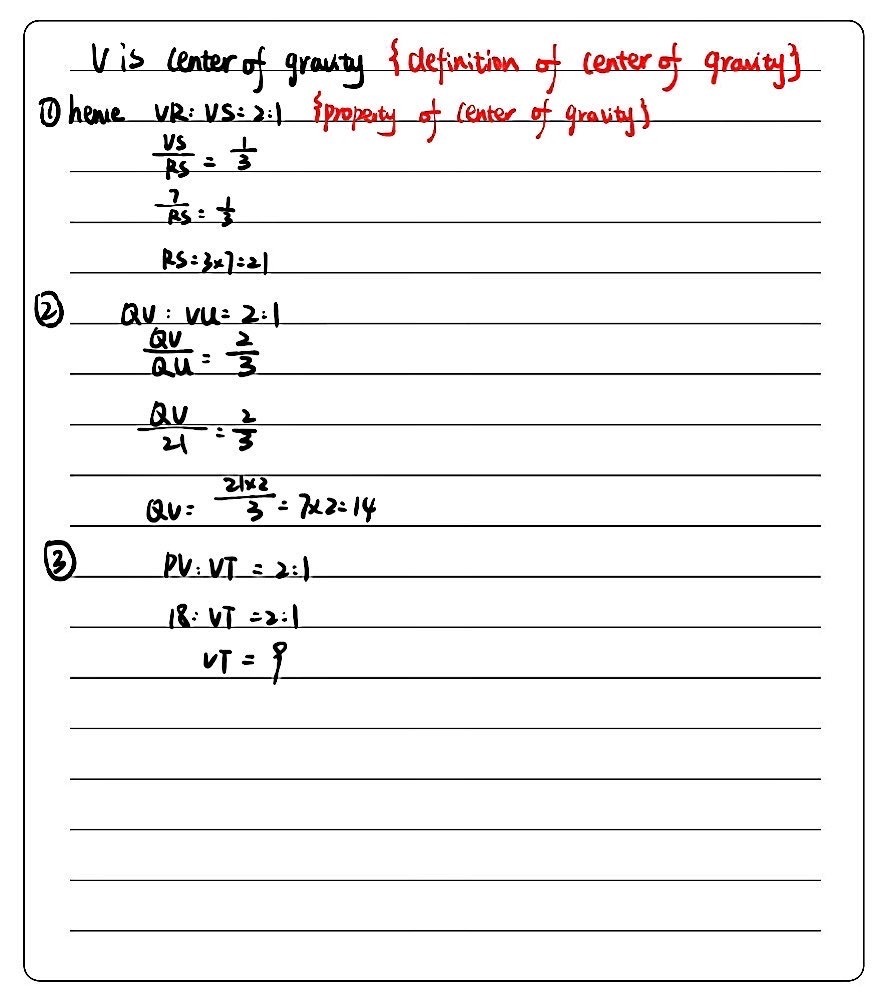 V is center of gravity {definition of center of gravity}
① hence VR: VS = 2:1 {property of center of gravity}
VS/RS = 1/3
7/RS = 1/3
RS = 3×7 = 21
② QV : VU = 2:1
QV/QU = 2/3
QV/21 = 2/3
QV = 21×2/3 = 7×2 = 14
③ PV: VT = 2:1
18: VT = 2:1
VT = 9